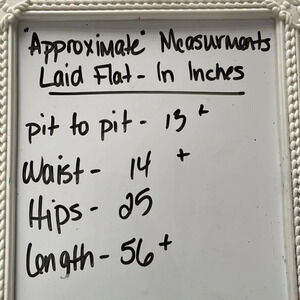 "Approximate" Measurments
Laid Flat - In Inches
pit to pit - 13 +
Waist - 14 +
Hips - 25
Length - 56 +